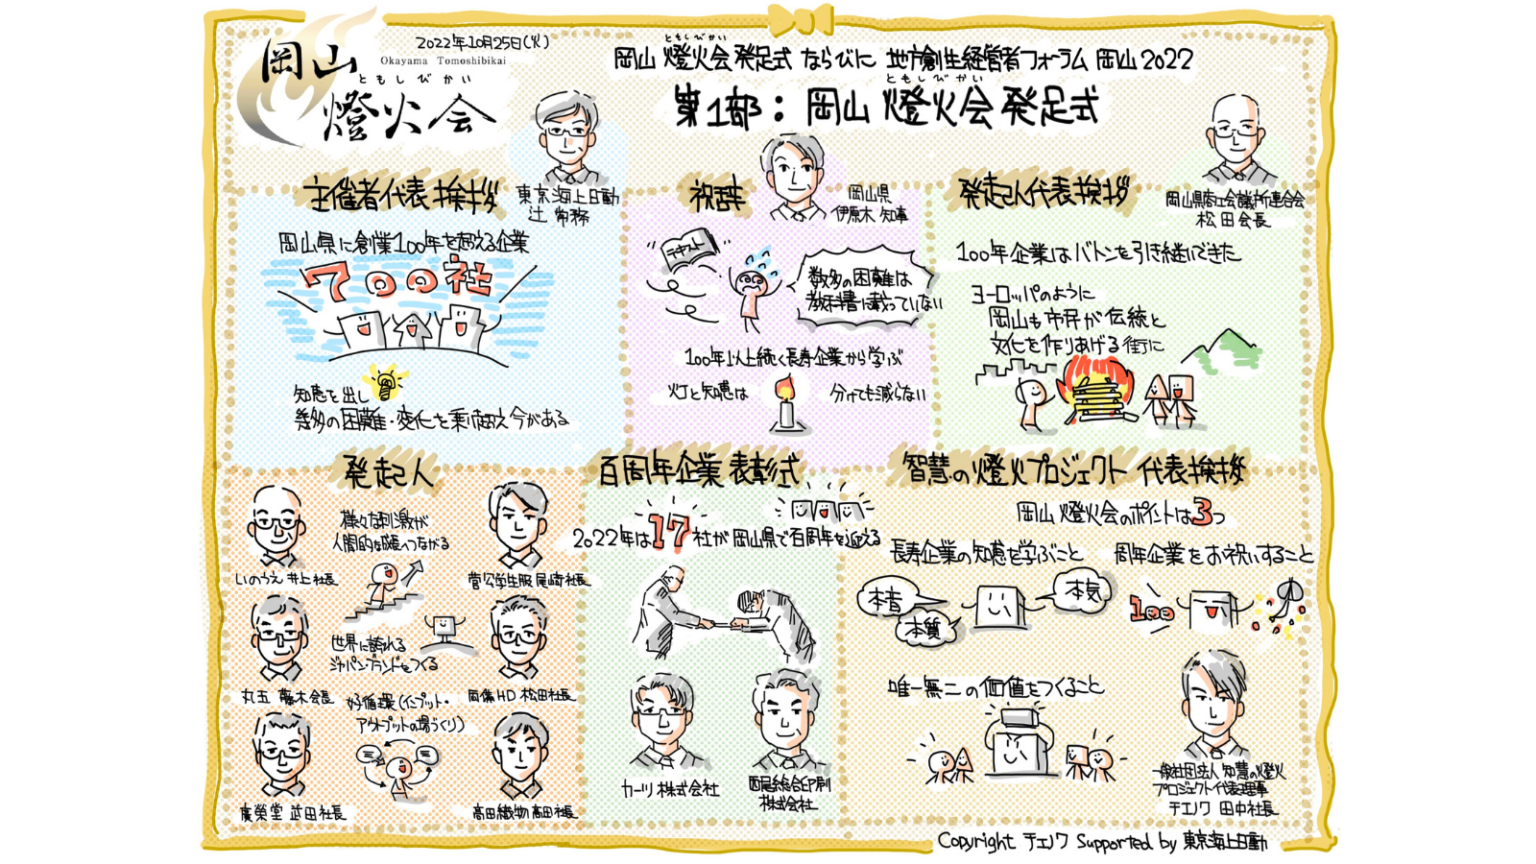 2022年10月25日(火)
岡山
Okayama Tomoshibikai
ともしびかい
燈火会
ともしびかい
岡山 燈火会 発足式 ならびに 地方創生経営者フォーラム 岡山2022
ともしびかい
第1部：岡山 燈火会 発足式
主催者代表挨拶
東京海上日動
辻 常務
岡山県に創業100年を超える企業
700社
知恵を出し
数多の困難・変化を乗り越え今がある
祝辞
岡山県
伊原木 知事
テキスト
数多の困難は
教科書に載っていない
100年以上続く長寿企業から学ぶ
灯と知恵は
分けても減らない
発起人代表挨拶
岡山県商工会議所連合会
松田会長
100年企業はバトンを引き継いできた
ヨーロッパのように
岡山も市井が伝統と
文化を作りあげる街に
発起人
様々な刺激が
人間的な成長へつながる
いのうえ 井上社長
菅公学生服 尾崎社長
世界に誇れる
ジャパンブランドをつくる
丸五 藤木会長
両備HD 松田社長
好循環(インプット・
アウトプットの場づくり)
廣榮堂 武田社長
髙田織物 髙田社長
百周年企業 表彰式
2022年は17社が岡山県で百周年を迎える
カーツ株式会社
西尾総合印刷
株式会社
智慧の燈火プロジェクト 代表挨拶
岡山 燈火会のポイントは3つ
長寿企業の知恵を学ぶこと
周年企業をお祝いすること
本音
本質
本気
100
唯一無二の価値をつくること
一般社団法人 知慧の燈火
プロジェクト代表理事
チエノワ 田中社長
Copyright チエノワ Supported by 東京海上日動